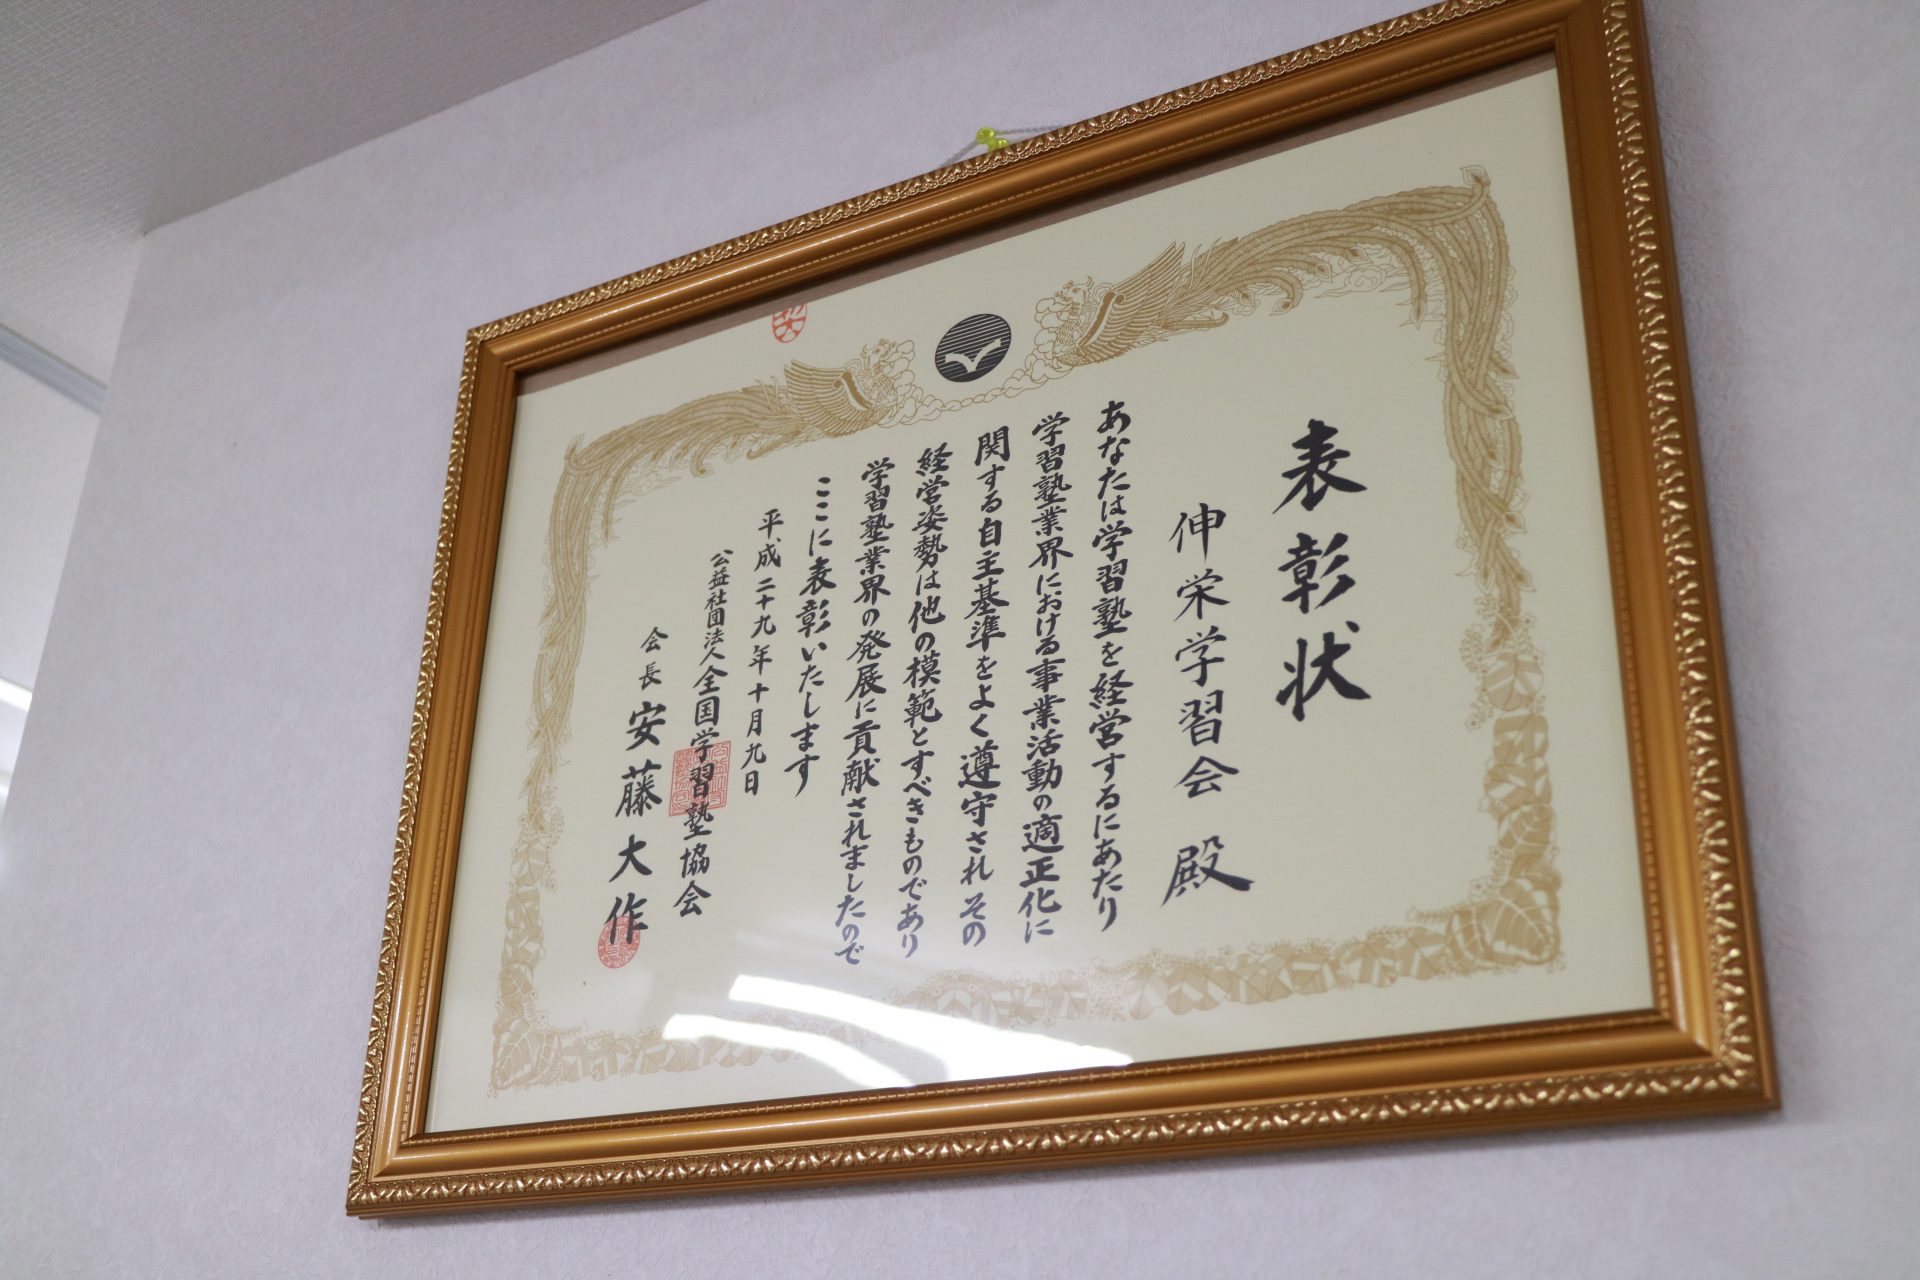 表彰状
伸栄学習会 殿
あなたは学習塾を経営するにあたり
学習塾業界における事業活動の適正化に
関する自主基準をよく遵守され その
経営姿勢は他の模範とすべきものであり
学習塾業界の発展に貢献されましたので
ここに表彰いたします
平成二十九年十月九日
公益社団法人全国学習塾協会
会長 安藤大作